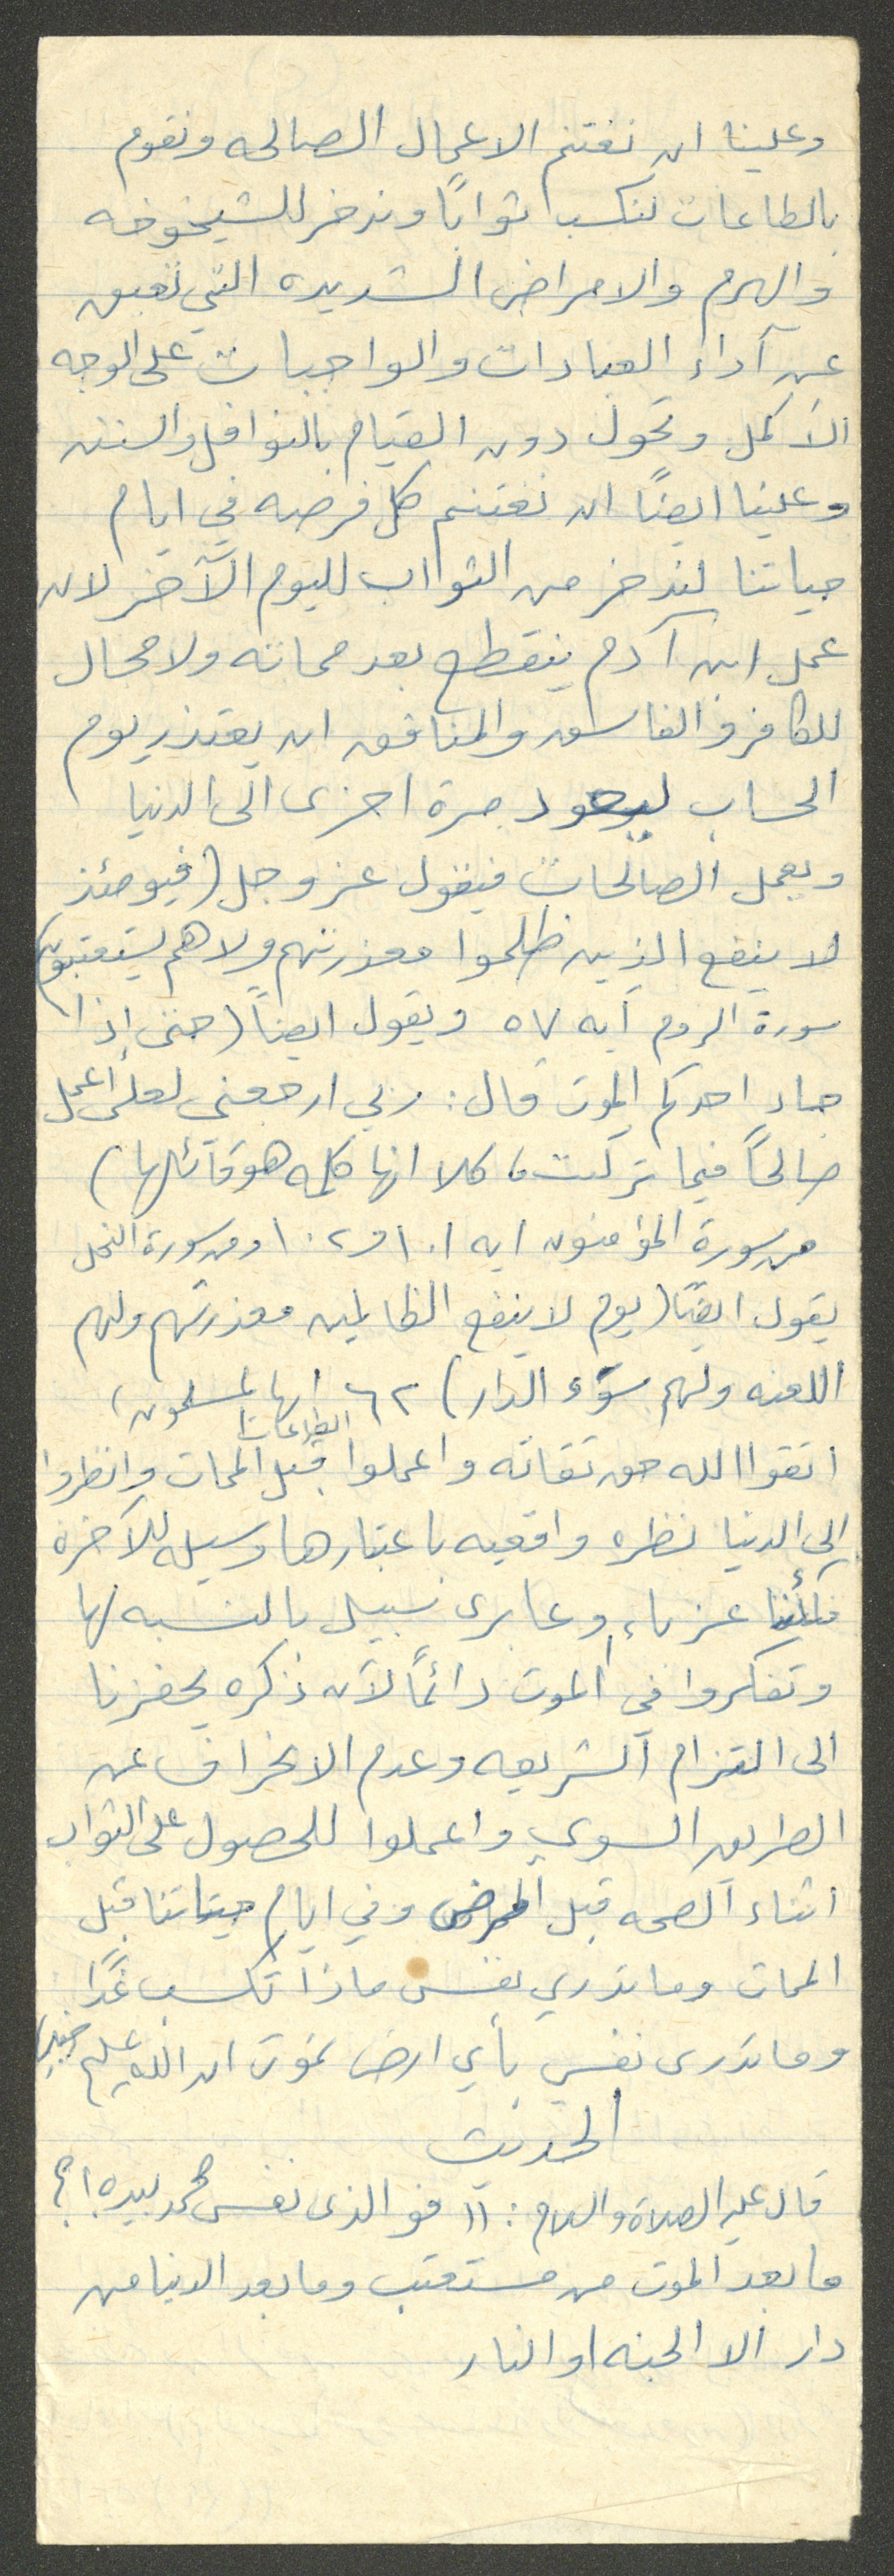 وعلينا ان نغتنم الاعمال الصالحه ونقوم
بالطاعات لنكسب ثوابًا وندخر للشيخوخه
والهرم والامراض الشديده التي تعيق
عن آداء العبادات والواجبات على الوجه
الأكمل وتحول دون القيام بالنوافل والسنن
وعلينا ايضًا ان نغتنم كل فرصه في ايام
حياتنا لندخر من الثوااب لليوم الآخر لان
عمل ابن آدم ينقطع بعد مماته ولا مجال
للكافر والفاسق والمنافق ان يعتذر يوم
الحساب ليعود مرة اخرى الى الدنيا
ويعمل الصالحات فيقول عز وجل (فيومئذ
لا ينفع الذين ظلموا معذرتهم ولا هم يستعتبون)
سورة الروم آيه ٥٧ ويقول ايضاً (حتى إذا
جاء احدكم الموت قال: ربي ارجعني لعلى أعمل
صالحاً فيما تركت، كلا انها كلمه هو قائلها)
من سورة المؤمنون ايه ١٠١ و١٠٢ ومن سورة النحل
يقول ايضًا (يوم لا ينفع الظالمين معذرتهم ولهم
اللعنه ولهم سوّء الدار) ٦٢ ايها المسلمون،
اتقوا الله حق تقاته واعملوا الطاعات قبل الممات وانظروا
إلى الدنيا نظره واقعيه باعتبارها وسيله للآخره
فكأننا غرباء وعابرى سبيل بالنسبه لها
وتفكروا في الموت دائماً لآن ذكره يحفزنا
الى التزام الشريعه وعدم الانحراف عن
الطريق السوي واعملوا للحصول على الثواب
اثناء الصحه قبل المرض وفي ايام حياتنا قبل
الممات وما تدري نفس ماذا تكسب غدًا
وما تدرى نفس بأي ارض تموت ان الله عليم خبير)
الحديث
قال عليه الصلاة والسلام: "فوالذى نفس محمد بيده!؟
ما بعد الموت من مستعتب وما بعد الدنيا من
دار الا الجنه او النار